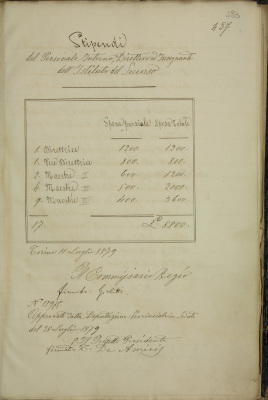 437
Stipendi
del Personale Interno, Direttivo ed Insegnante
dell'Istituto del Soccorso
Spesa parziale Spesa Totale
1. Direttrice 1200. 1200.
1. Vice Direttrice 800. 800.
2. Maestre I 600. 1200
4. Maestre II 500. 2000.
9. Maestre III 400. 3600.
17. L. 8800.
Torino 11 Luglio 1879
Il Commissario Regio
firmato
Approvato dalla Deputazione Provinciale in seduta
del 28 Luglio 1879
p. Il Prefetto Presidente
firmato De Amicis